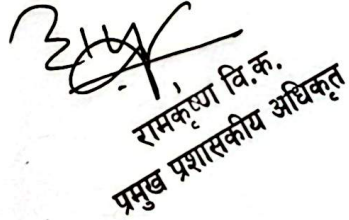 रामकृष्ण वि.क.
प्रमुख प्रशासकीय अधिकृत